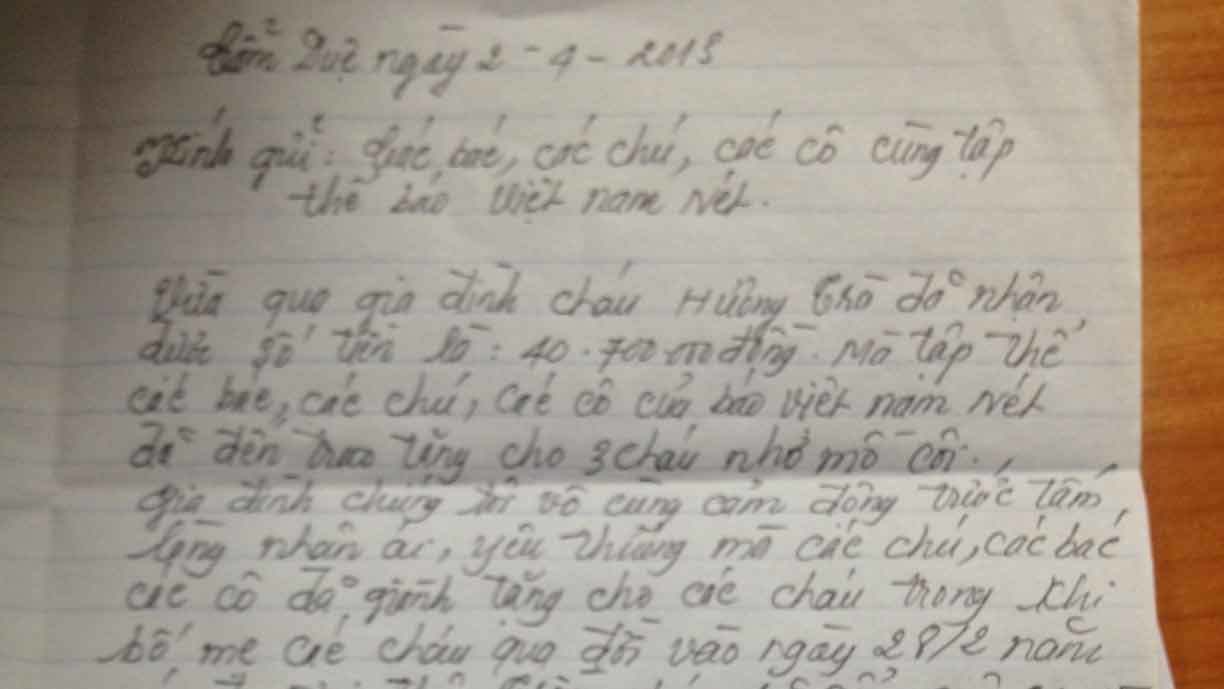 Cẩm Duệ ngày 2-4-2013
Kính gửi: Các, bác, các chú, các cô cùng tập
thể báo Việt nam nét.
Vừa qua gia đình cháu Hương Trà đã nhận
được số tiền là: 40.700.000 đồng. Mà tập thể
các bác, các chú, các cô của báo việt nam nét
đã đến trao tặng cho 3 cháu nhỏ mồ côi.
gia đình chúng tôi vô cùng cảm động trước tấm
lòng nhân ái, yêu thương mà các chú, các bác
các cô đã giành tặng cho các cháu trong khi
bố, mẹ các cháu qua đời vào ngày 28/2 năm